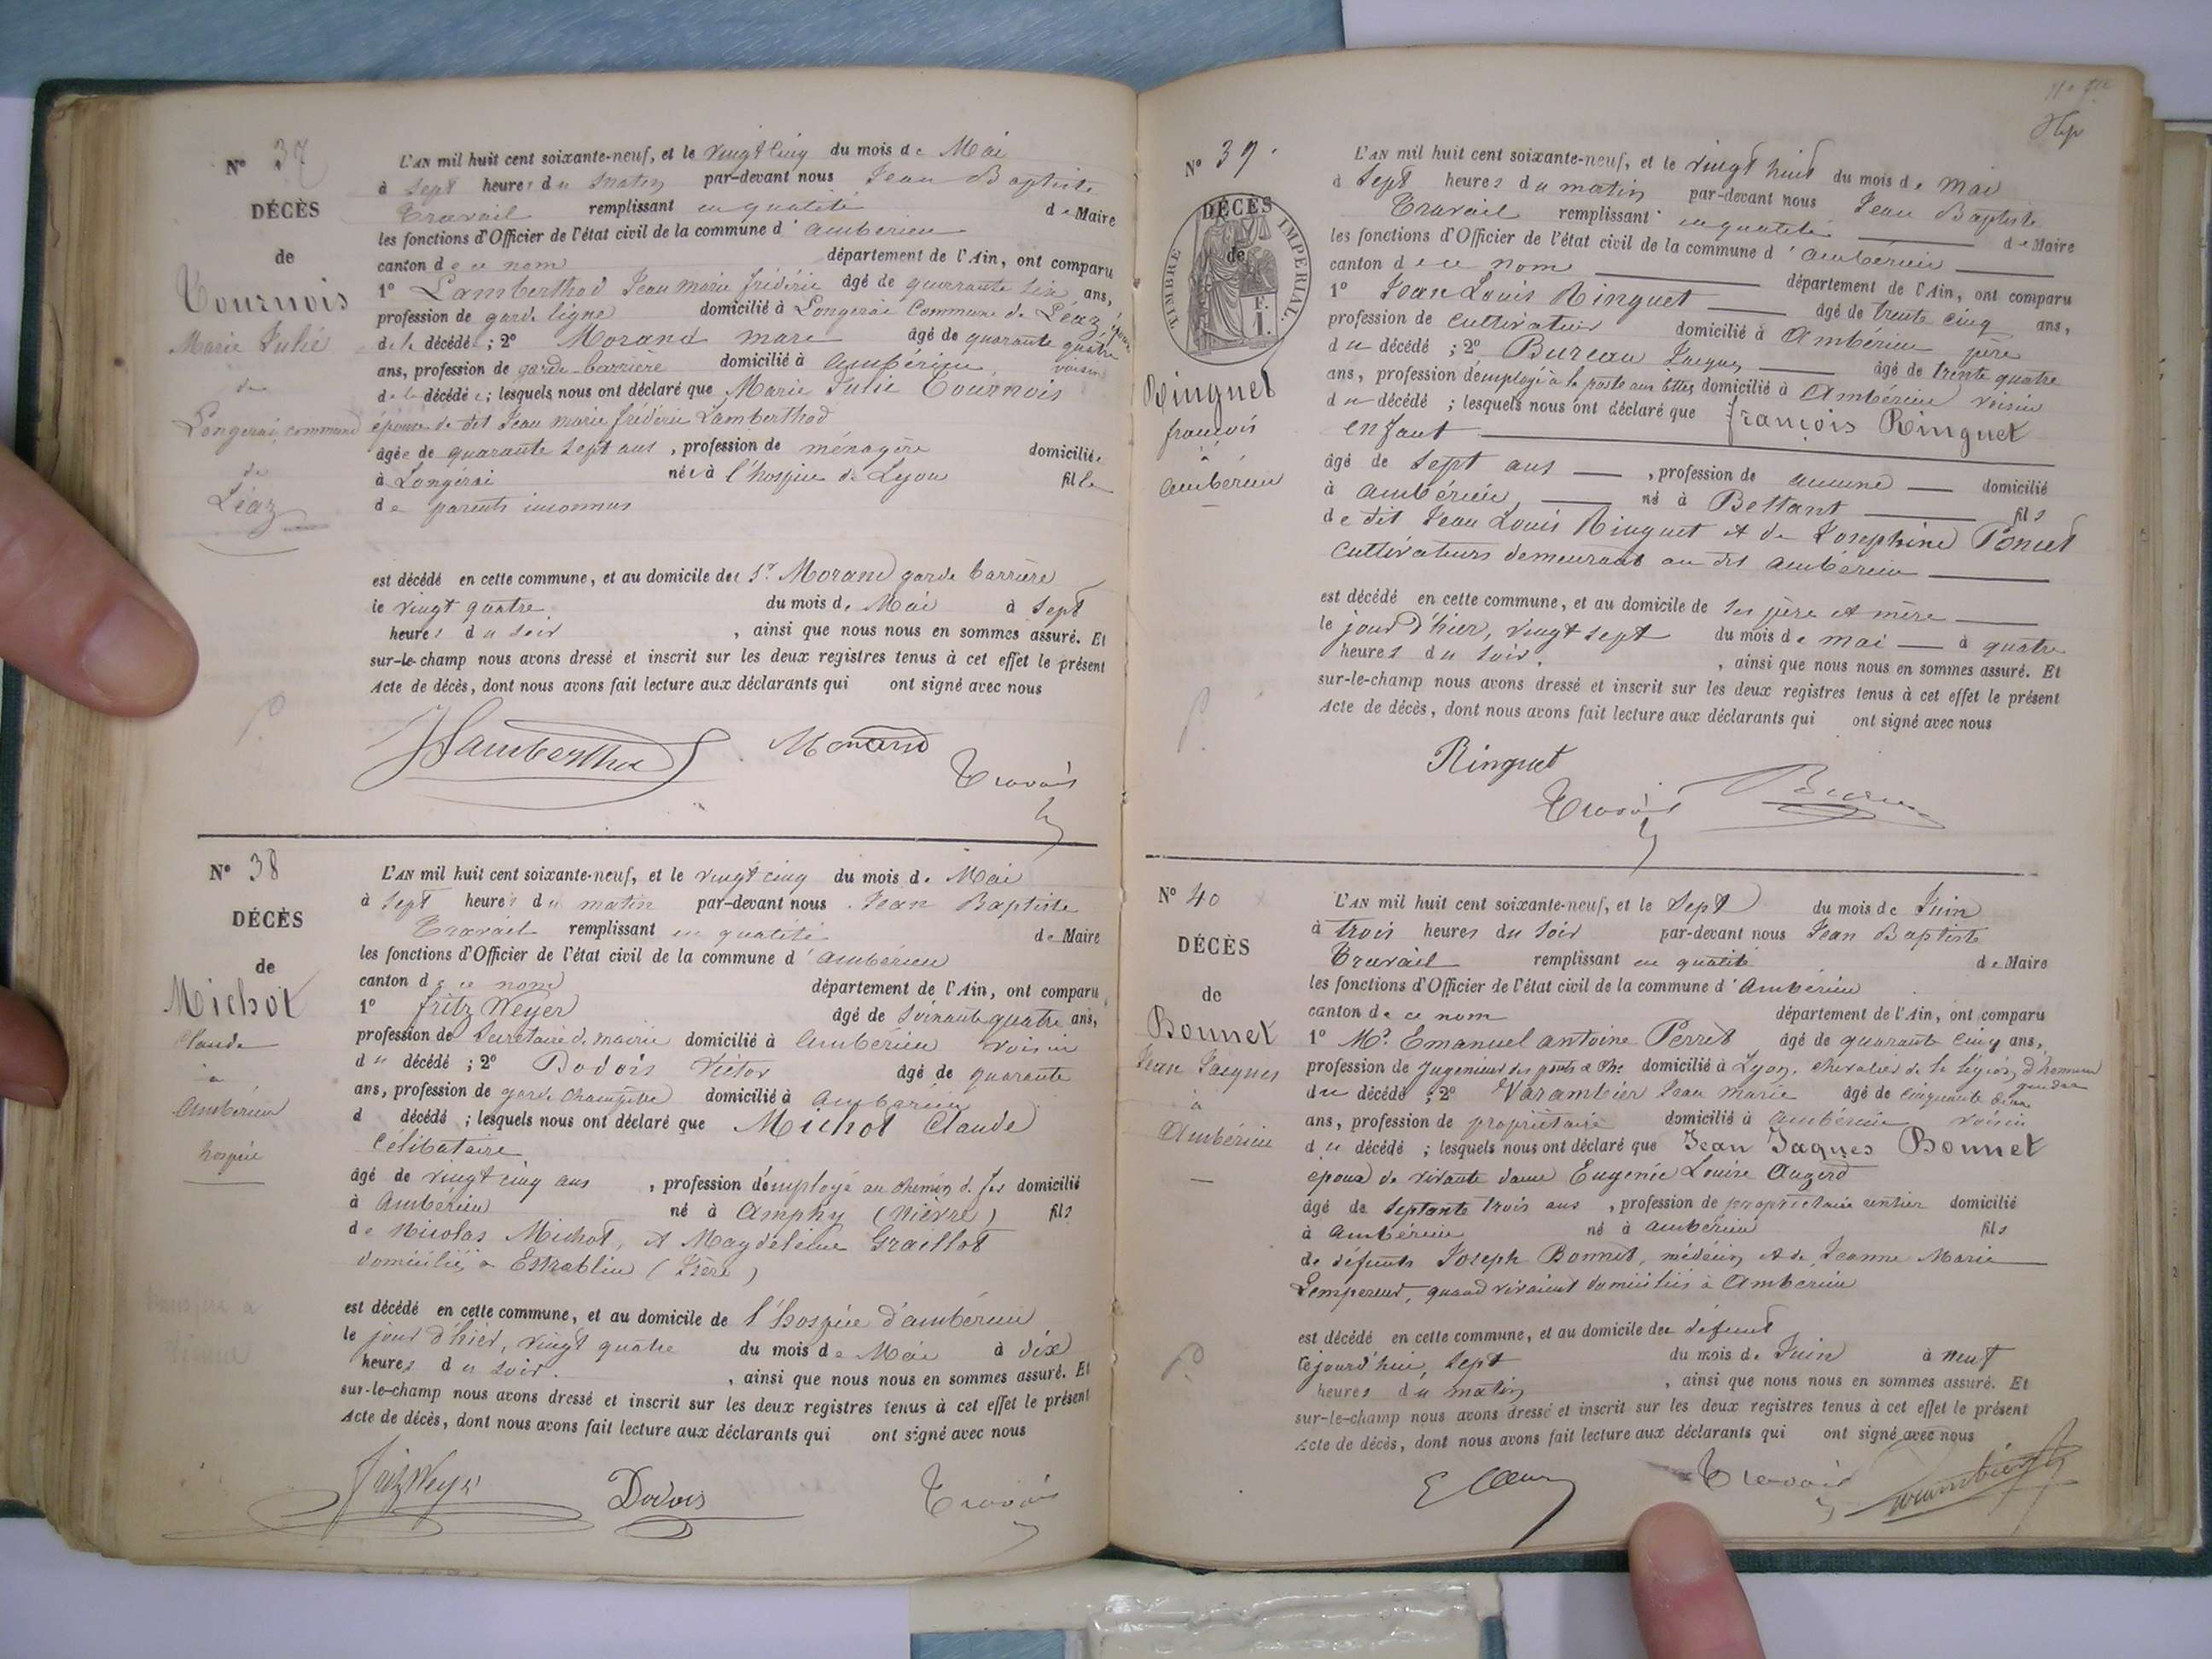 N° 37
DÉCÈS
de
Tournois
Marie Julie
de
Longerai, commune
de
Léaz
L'AN mil huit cent soixante-neuf, et le vingt cinq du mois de Mai
à sept heures du matin par-devant nous Jean Baptiste
Travail remplissant en qualité de Maire
les fonctions d'Officier de l'état civil de la commune d'ambérieu
canton de ce nom département de l'Ain, ont comparu
1° Lamberthod Jean marie frédéric âgé de quarante six ans,
profession de garde ligne domicilié à Longerai Commune de Léaz, époux
de la décédée ; 2° Morand marc âgé de quarante quatre
ans, profession de garde-barrière domicilié à ambérieu, voisin
de la décédée ; lesquels nous ont déclaré que Marie Julie Tournois
épouse de dit Jean marie frédéric Lamberthod
âgée de quarante sept ans, profession de ménagère domiciliée
à Longerai née à l'hospice de Lyon fille
de parents inconnus
est décédé en cette commune, et au domicile du Sr Morand garde barrière
le vingt quatre du mois de Mai à sept
heures du soir, ainsi que nous nous en sommes assuré. Et
sur-le-champ nous avons dressé et inscrit sur les deux registres tenus à cet effet le présent
Acte de décès, dont nous avons fait lecture aux déclarants qui ont signé avec nous
Lamberthod Morand
Travail
N° 38
DÉCÈS
de
Michot
Claude
à
Ambérieu
hospice
L'AN mil huit cent soixante-neuf, et le vingt cinq du mois de Mai
à sept heures du matin par-devant nous Jean Baptiste
Travail remplissant en qualité de Maire
les fonctions d'Officier de l'état civil de la commune d'ambérieu
canton de ce nom département de l'Ain, ont comparu
1° fritz Weyer âgé de soixante quatre ans,
profession de Secrétaire de mairie domicilié à Ambérieu voisin
du décédé ; 2° Dodois Victor âgé de quarante
ans, profession de garde champêtre domicilié à Ambérieu
d décédé ; lesquels nous ont déclaré que Michot Claude
Célibataire
âgé de vingt cinq ans, profession d'employé au chemin de fer domicilié
à Ambérieu né à Amphy (Nièvre) fils
de Nicolas Michot, et Magdeleine Graillot
domiciliés à Estrablin (Isère)
est décédé en cette commune, et au domicile de l'hospice d'ambérieu
le jour d'hier, vingt quatre du mois de Mai à dix
heures du soir, ainsi que nous nous en sommes assuré. Et
sur-le-champ nous avons dressé et inscrit sur les deux registres tenus à cet effet le présent
Acte de décès, dont nous avons fait lecture aux déclarants qui ont signé avec nous
Fritz Weyer Dodois Travail
N° 39.
TIMBRE IMPERIAL.
F.
1.
DÉCÈS
de
Ringuet
françois
à
Ambérieu
L'AN mil huit cent soixante-neuf, et le vingt huit du mois de mai
à sept heures du matin par-devant nous Jean Baptiste
Travail remplissant en qualité de Maire
les fonctions d'Officier de l'état civil de la commune d'ambérieu
canton de ce nom département de l'Ain, ont comparu
1° Jean Louis Ringuet âgé de trente cinq ans,
profession de cultivateur domicilié à Ambérieu père
du décédé ; 2° Bureau Jacques âgé de trente quatre
ans, profession d'employé à la poste aux lettres domicilié à Ambérieu voisin
du décédé ; lesquels nous ont déclaré que françois Ringuet
enfant
âgé de sept ans, profession de aucune domicilié
à ambérieu, né à Bettant fils
de dit Jean Louis Ringuet et de Josephine Poncet
cultivateurs demeurant au dit ambérieu
est décédé en cette commune, et au domicile de ses père et mère
le jour d'hier, vingt sept du mois de mai à quatre
heures du soir, ainsi que nous nous en sommes assuré. Et
sur-le-champ nous avons dressé et inscrit sur les deux registres tenus à cet effet le présent
Acte de décès, dont nous avons fait lecture aux déclarants qui ont signé avec nous
Ringuet
Travail Bureau
N° 40
DÉCÈS
de
Bonnet
Jean Jacques
à
Ambérieu
L'AN mil huit cent soixante-neuf, et le sept du mois de Juin
à trois heures du soir par-devant nous Jean Baptiste
Travail remplissant en qualité de Maire
les fonctions d'Officier de l'état civil de la commune d'ambérieu
canton de ce nom département de l'Ain, ont comparu
1° Mr Emanuel antoine Perret âgé de quarante cinq ans,
profession de Ingénieur des ponts & Ch. domicilié à Lyon, chevalier de la légion d'honneur
du décédé ; 2° Varambier Jean marie âgé de cinquante deux
ans, profession de propriétaire domicilié à ambérieu voisin
du décédé ; lesquels nous ont déclaré que Jean Jaques Bonnet
époux de vivante dame Eugenie Louise Augerd
âgé de septante trois ans, profession de propriétaire rentier domicilié
à ambérieu né à ambérieu fils
de défunts Joseph Bonnet, médecin et de Jeanne Marie
Lempereur, quand vivaient domiciliés à Ambérieu
est décédé en cette commune, et au domicile du défunt
cejourd'hui, sept du mois de Juin à neuf
heures du matin, ainsi que nous nous en sommes assuré. Et
sur-le-champ nous avons dressé et inscrit sur les deux registres tenus à cet effet le présent
Acte de décès, dont nous avons fait lecture aux déclarants qui ont signé avec nous
Travail Varambier